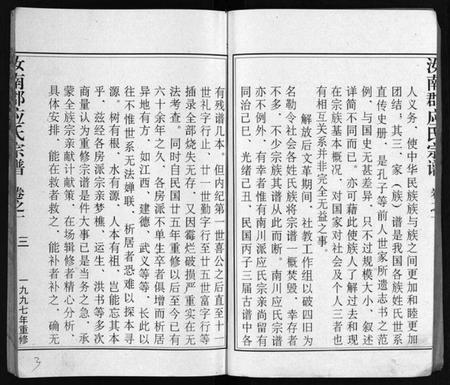 汝南郡应氏宗谱 卷之一
人义务，使中华民族族与族之间更加和睦更加
团结；其三、家（族）谱是我国各族姓氏世系
直传史册，是孔子等前人世家所遗志书之范
例，与国史无甚差异，只不过规模大小，叙述
详简不同而已。亦可藉此使族人了解过去和现
在宗族基本概况，对国家对社会及个人三者也
有相互关系并非完全无益之事。
解放后文革期间，社教工作组以破四旧为
名勒令社会各姓氏族将宗谱一概焚毁，幸存者
无几，不少宗族其谱从此而断。南川应氏宗谱
亦不例外，有幸者惟有南川派应氏宗亲尚留有
同治己巳、光绪己丑、民国丙子三届古谱中各
有残谱几本。但内纪第一世喜公之后直至十一
世礼字行止，廿一世勤字行至廿五世富字行等
插录全部烧失无存，又因霉烂破损严重实在无
法考查。同时自民国廿五年重修以后至今已有
六十余年之久，各房派不单生卒者俱增而析居
异地有方，如江西、建德、武义等等，长此以
往不惟世系无法婵联，析居者恐难以探本寻
源。树有根，水有源，人本有祖，岂能忘其本
乎，兹经各房派宗亲梦樵、运生、洪书等多次
商量认为重修宗谱是件大事已是当务之急，承
蒙全族宗亲献计献策，在场辑修者精心分析、
具体安排，能在救者救之，能补者补之，确无
汝南郡应氏宗谱 卷之一 三 一九九七年重修
3